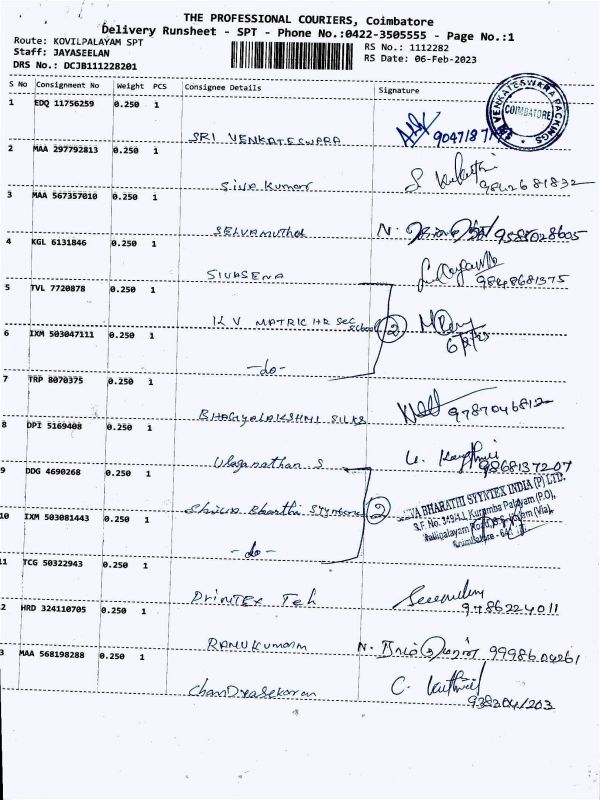 THE PROFESSIONAL COURIERS, Coimbatore
Delivery Runsheet - SPT - Phone No.:0422-3505555 - Page No.:1
Route: KOVILPALAYAM SPT
RS No.: 1112282
Staff: JAYASEELAN
RS Date: 06-Feb-2023
DRS No.: DCJB111228201
S No Consignment No Weight PCS Consignee Details Signature
COIMBATORE
1 EDQ 11756259 0.250 1
SRI VENKATESWARA
2 MAA 297792813 0.250 1
Siva Kumar 9842681832
3 MAA 567357010 0.250 1
SELVAMUTHU N.
4 KGL 6131846 0.250 1
SIVASENA 9848681375
5 TVL 7720878 0.250 1
K V MATRIC HR SEC SCHOOL 2
6 IXM 503047111 0.250 1
-do-
7 TRP 8070375 0.250 1
BHAGYALAKSHMI SILKS 9787046812
8 DPI 5169408 0.250 1
Ulaganathan S 9868137207
9 DDG 4690268 0.250 1
Shiva Bharthi Styntex 2
BHARATHI SYNTEX INDIA (P) LTD.
10 IXM 503081443 0.250 1
-do-
11 TCG 50322943 0.250 1
PrinTEX Teh 9786224011
12 HRD 324110705 0.250 1
RAMUKUMAR N.
13 MAA 568198288 0.250 1
Chandrasekaran C.